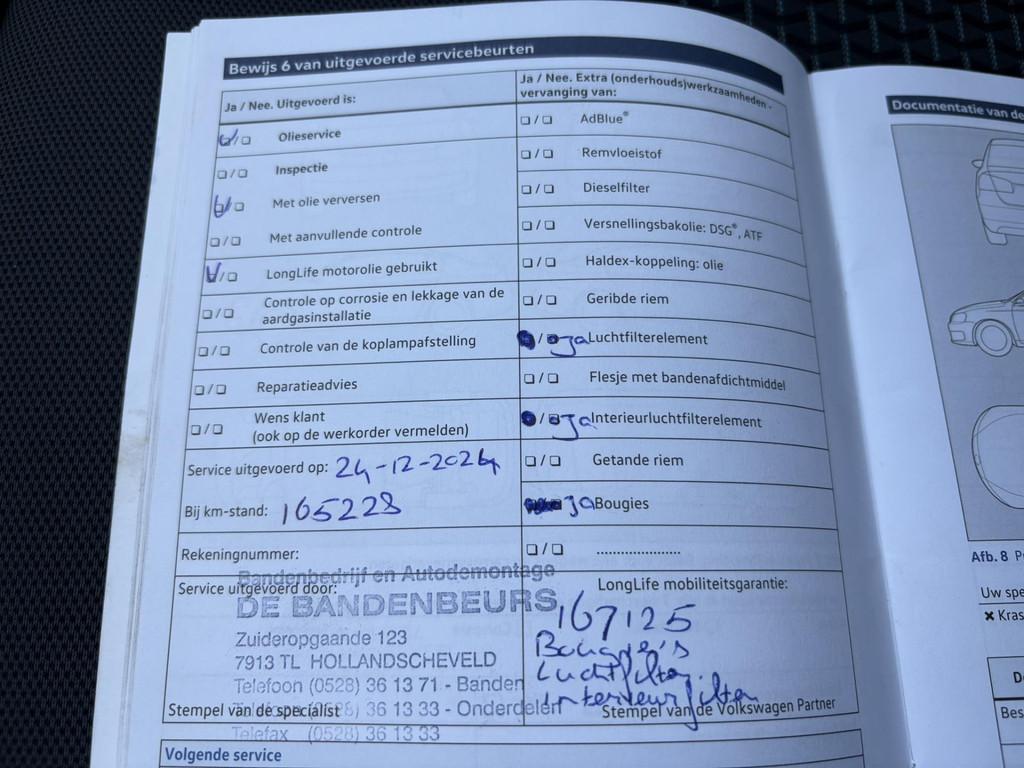 Bewijs 6 van uitgevoerde servicebeurten
Ja / Nee. Uitgevoerd is:
Olieservice
Inspectie
Met olie verversen
Met aanvullende controle
LongLife motorolie gebruikt
Controle op corrosie en lekkage van de
aardgasinstallatie
Controle van de koplampafstelling
Reparatieadvies
Wens klant
(ook op de werkorder vermelden)
Service uitgevoerd op: 24-12-2024
Bij km-stand: 165228
Rekeningnummer:
Service uitgevoerd door:
Bandenbedrijf en Autodemontage
DE BANDENBEURS
Zuideropgaande 123
7913 TL HOLLANDSCHEVELD
Telefoon (0528) 36 13 71 - Banden
Telefoon (0528) 36 13 33 - Onderdelen
Telefax (0528) 36 13 33
Stempel van de specialist
Ja / Nee. Extra (onderhouds)werkzaamheden -
vervanging van:
AdBlue®
Remvloeistof
Dieselfilter
Versnellingsbakolie: DSG®, ATF
Haldex-koppeling: olie
Geribde riem
ja Luchtfilterelement
Flesje met bandenafdichtmiddel
ja Interieurluchtfilterelement
Getande riem
ja Bougies
....................
LongLife mobiliteitsgarantie:
167125
Bougie's
Luchtfilter
Interieurfilter
Stempel van de Volkswagen Partner
Volgende service
Documentatie van de
Afb. 8
Uw spe
✖ Kras
D
Bes